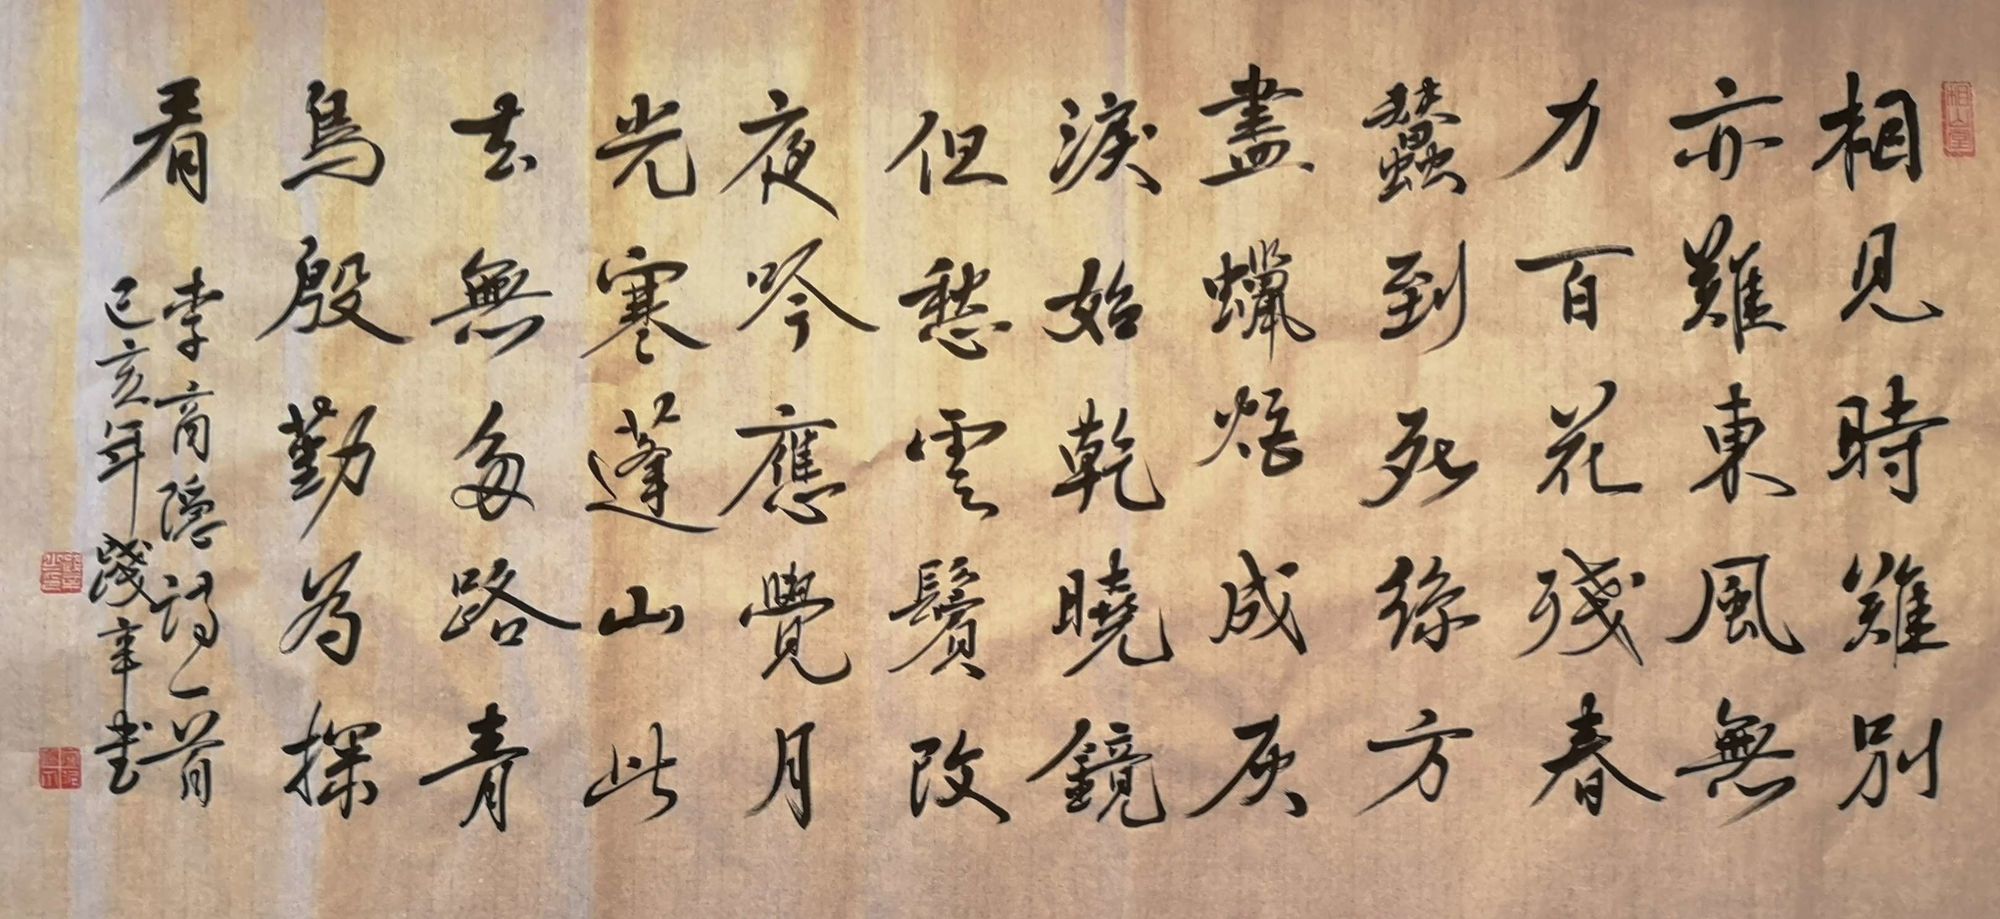 相見時難別
亦難東風無
力百花殘春
蠶到死絲方
盡蠟炬成灰
淚始乾曉鏡
但愁雲鬢改
夜吟應覺月
光寒蓬山此
去無多路青
鳥殷勤為探
看
李商隱詩一首
己亥年 辛書